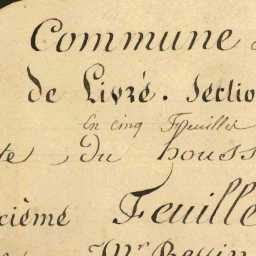 Commune
de Livré. Sectio
En cinq Feuilles
te du houss
xième Feuille
Mr